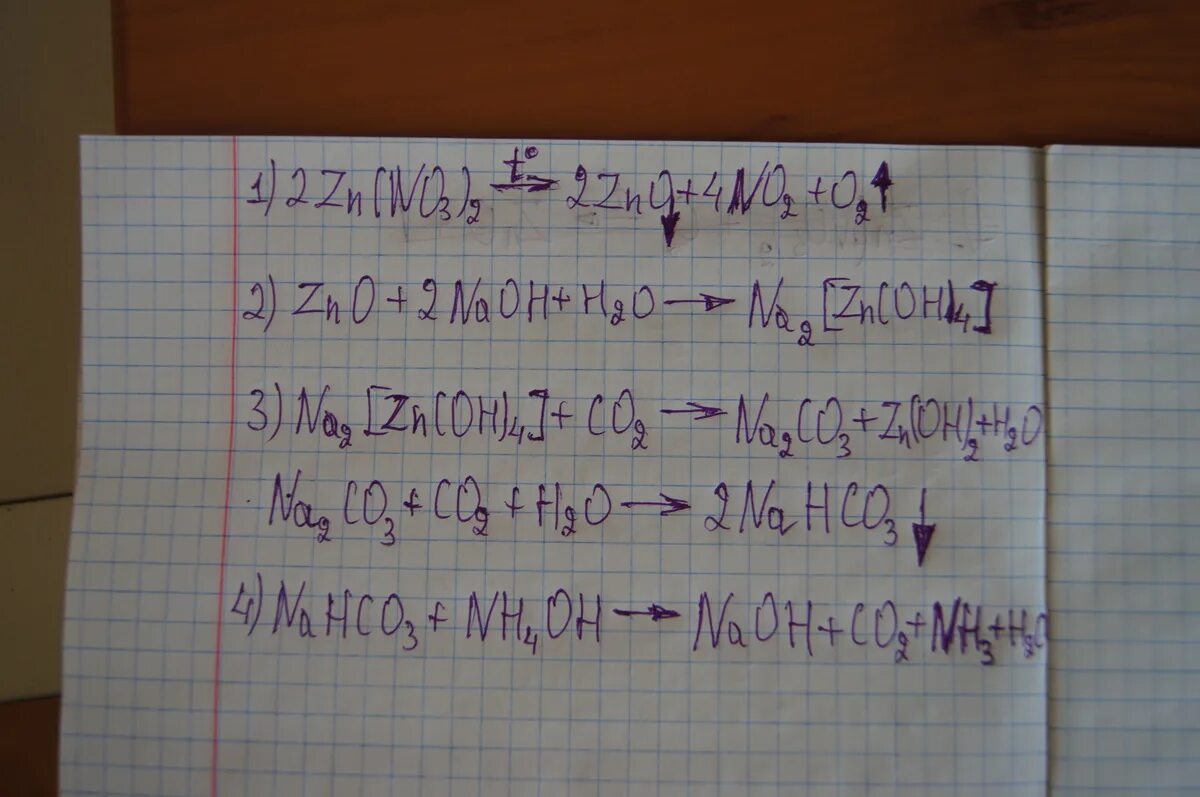 1) 2Zn(NO₃)₂ =t°=> 2ZnO↓ + 4NO₂ + O₂↑
2) ZnO + 2NaOH + H₂O → Na₂[Zn(OH)₄]
3) Na₂[Zn(OH)₄] + CO₂ → Na₂CO₃ + Zn(OH)₂ + H₂O
Na₂CO₃ + CO₂ + H₂O → 2NaHCO₃↓
4) NaHCO₃ + NH₄OH → NaOH + CO₂ + NH₃ + H₂O